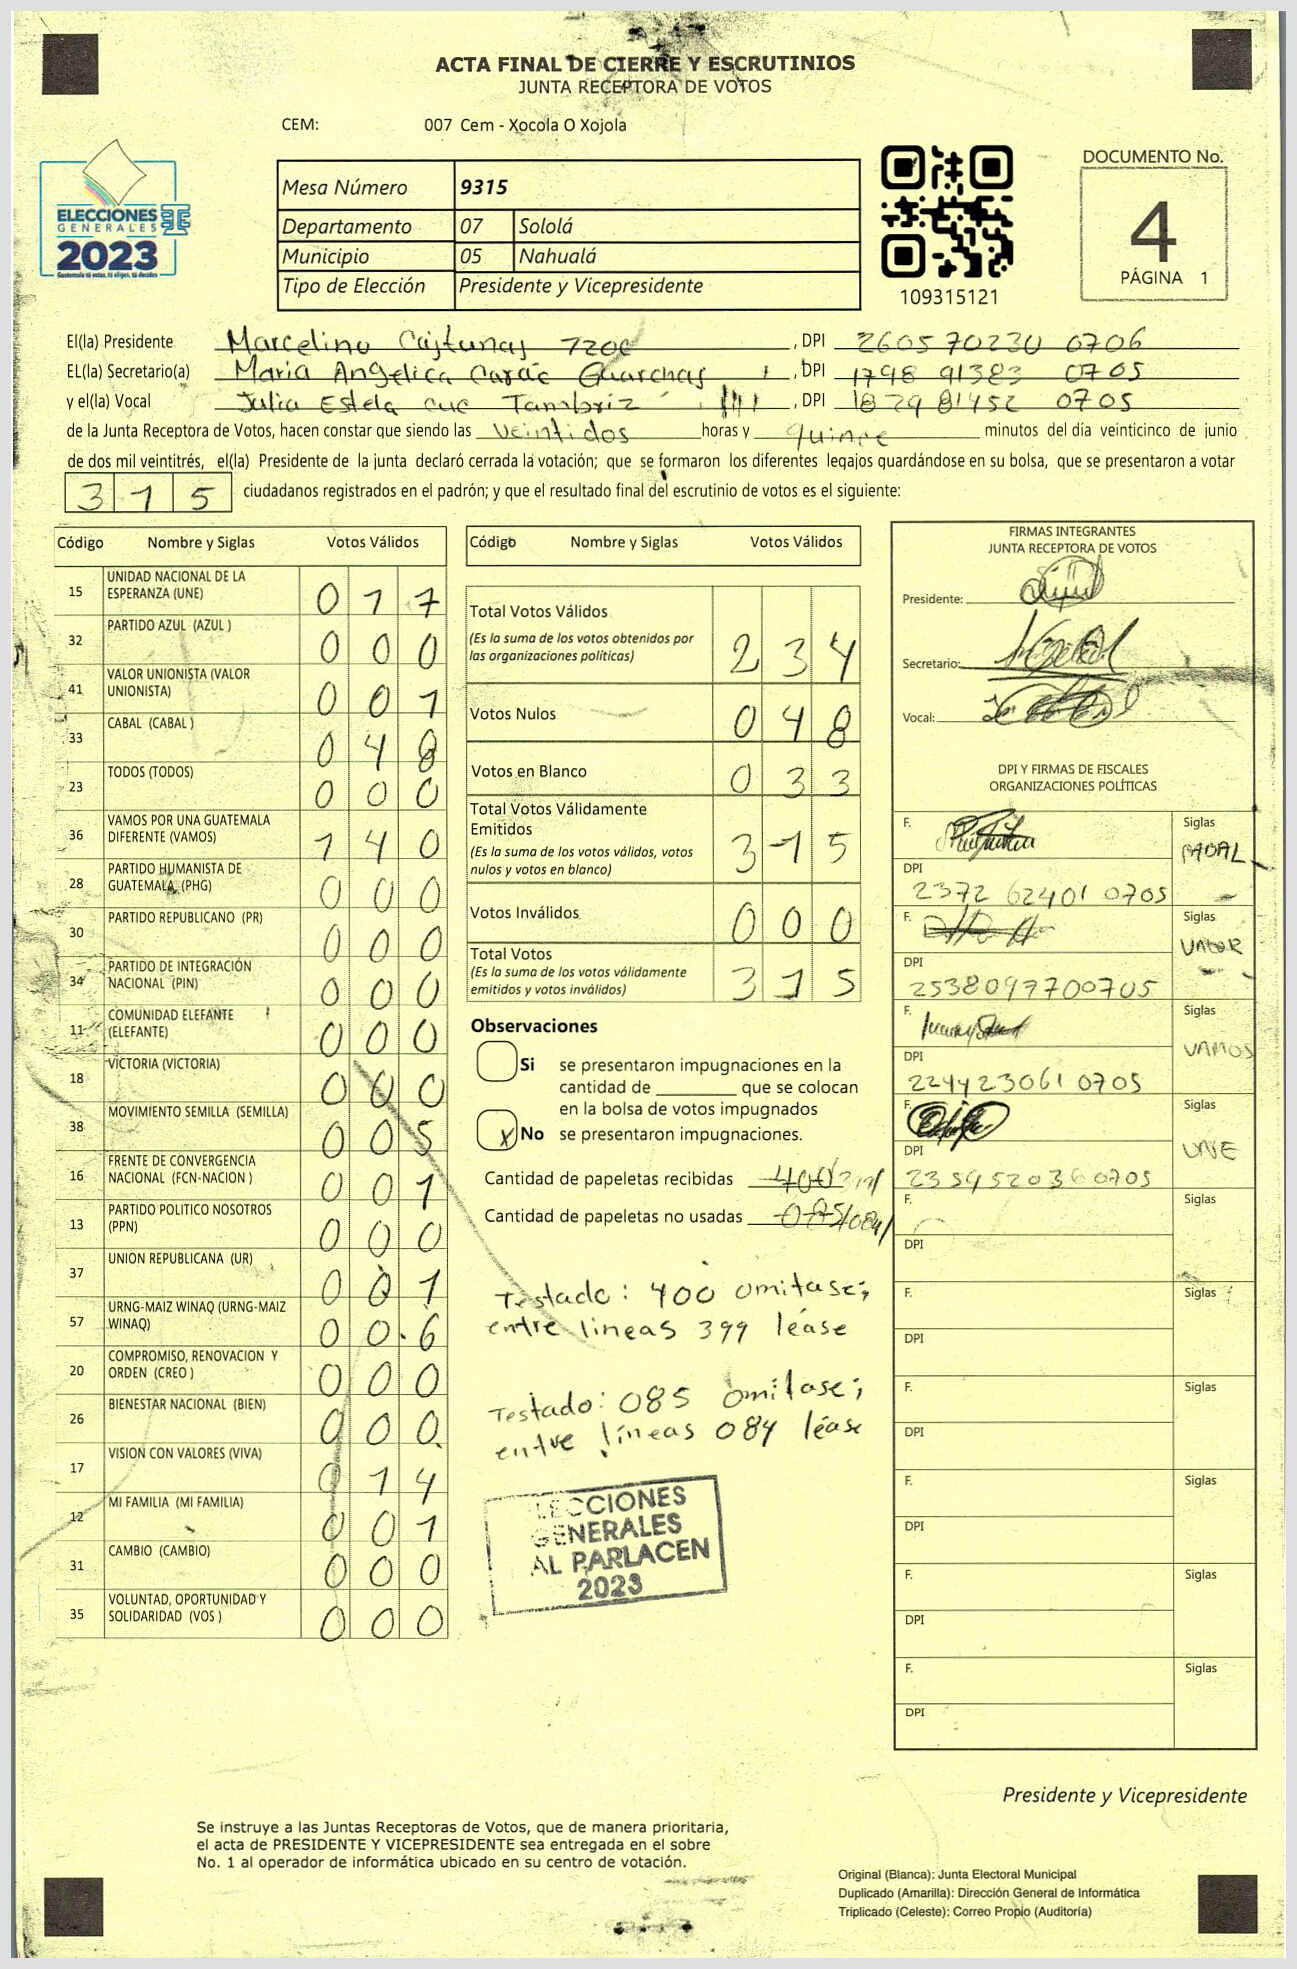 ACTA FINAL DE CIERRE Y ESCRUTINIOS
JUNTA RECEPTORA DE VOTOS
CEM: 007 Cem - Xocola O Xojola
ELECCIONES
GENERALES
2023
Guatemala tú votas, tú eliges, tú decides
Mesa Número 9315
Departamento 07 Sololá
Municipio 05 Nahualá
Tipo de Elección Presidente y Vicepresidente
109315121
DOCUMENTO No.
4
PÁGINA 1
El(la) Presidente Marcelino , DPI 260570230 0706
EL(la) Secretario(a) Maria Angelica Guarchas , DPI 1798 91383 0705
y el(la) Vocal Julia Estela cuc Tambriz , DPI 1829 81452 0705
de la Junta Receptora de Votos, hacen constar que siendo las veintidos horas y quince minutos del día veinticinco de junio
de dos mil veintitrés, el(la) Presidente de la junta declaró cerrada la votación; que se formaron los diferentes legajos guardándose en su bolsa, que se presentaron a votar
315 ciudadanos registrados en el padrón; y que el resultado final del escrutinio de votos es el siguiente:
Código Nombre y Siglas Votos Válidos
15 UNIDAD NACIONAL DE LA ESPERANZA (UNE) 0 1 7
32 PARTIDO AZUL (AZUL ) 0 0 0
41 VALOR UNIONISTA (VALOR UNIONISTA) 0 0 1
33 CABAL (CABAL ) 0 4 8
23 TODOS (TODOS) 0 0 0
36 VAMOS POR UNA GUATEMALA DIFERENTE (VAMOS) 1 4 0
28 PARTIDO HUMANISTA DE GUATEMALA (PHG) 0 0 0
30 PARTIDO REPUBLICANO (PR) 0 0 0
34 PARTIDO DE INTEGRACIÓN NACIONAL (PIN) 0 0 0
11 COMUNIDAD ELEFANTE (ELEFANTE) 0 0 0
18 VICTORIA (VICTORIA) 0 0 0
38 MOVIMIENTO SEMILLA (SEMILLA) 0 0 5
16 FRENTE DE CONVERGENCIA NACIONAL (FCN-NACION ) 0 0 1
13 PARTIDO POLITICO NOSOTROS (PPN) 0 0 0
37 UNION REPUBLICANA (UR) 0 0 1
57 URNG-MAIZ WINAQ (URNG-MAIZ WINAQ) 0 0 6
20 COMPROMISO, RENOVACION Y ORDEN (CREO ) 0 0 0
26 BIENESTAR NACIONAL (BIEN) 0 0 0
17 VISION CON VALORES (VIVA) 0 1 4
12 MI FAMILIA (MI FAMILIA) 0 0 1
31 CAMBIO (CAMBIO) 0 0 0
35 VOLUNTAD, OPORTUNIDAD Y SOLIDARIDAD (VOS ) 0 0 0
Código Nombre y Siglas Votos Válidos
Total Votos Válidos 2 3 4
(Es la suma de los votos obtenidos por
las organizaciones políticas)
Votos Nulos 0 4 8
Votos en Blanco 0 3 3
Total Votos Válidamente
Emitidos 3 1 5
(Es la suma de los votos válidos, votos
nulos y votos en blanco)
Votos Inválidos 0 0 0
Total Votos 3 1 5
(Es la suma de los votos válidamente
emitidos y votos inválidos)
Observaciones
Si se presentaron impugnaciones en la
cantidad de ________ que se colocan
en la bolsa de votos impugnados
x No se presentaron impugnaciones.
Cantidad de papeletas recibidas 400
Cantidad de papeletas no usadas 085/084/
Testado: 400 omitase;
entre lineas 399 léase
Testado: 085 omitase;
entre líneas 084 léase
ELECCIONES
GENERALES
AL PARLACEN
2023
FIRMAS INTEGRANTES
JUNTA RECEPTORA DE VOTOS
Presidente:
Secretario:
Vocal:
DPI Y FIRMAS DE FISCALES
ORGANIZACIONES POLÍTICAS
F. Siglas
DPI
2372 62401 0705
F. Siglas VALOR
DPI
2538097700705
F. Siglas VAMOS
DPI
2244230610705
F. Siglas UNE
DPI
2359520360705
F. Siglas
DPI
F. Siglas
DPI
F. Siglas
DPI
F. Siglas
DPI
F. Siglas
DPI
F. Siglas
DPI
Presidente y Vicepresidente
Se instruye a las Juntas Receptoras de Votos, que de manera prioritaria,
el acta de PRESIDENTE Y VICEPRESIDENTE sea entregada en el sobre
No. 1 al operador de informática ubicado en su centro de votación.
Original (Blanca): Junta Electoral Municipal
Duplicado (Amarilla): Dirección General de Informática
Triplicado (Celeste): Correo Propio (Auditoría)